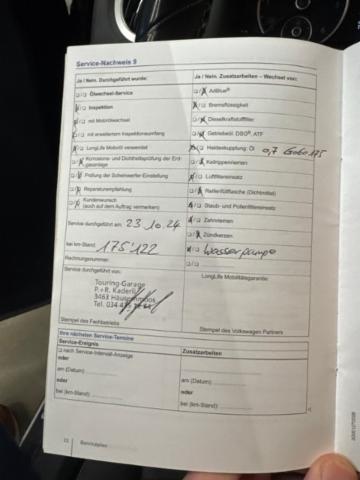 Service-Nachweis 9
Ja / Nein. Durchgeführt wurde:
Ölwechsel-Service
Inspektion
mit Motorölwechsel
mit erweitertem Inspektionsumfang
LongLife Motoröl verwendet
Korrosions- und Dichtheitsprüfung der Erdgasanlage
Prüfung der Scheinwerfer-Einstellung
Reparaturempfehlung
Kundenwunsch
(auch auf dem Auftrag vermerken)
Service durchgeführt am: 23.10.24
bei km-Stand: 175'122
Rechnungsnummer:
Service durchgeführt von:
Touring-Garage
P.+R. Kaderli
3463 Häusernmoos
Tel. 034
Stempel des Fachbetriebs
Ja / Nein. Zusatzarbeiten – Wechsel von:
AdBlue®
Bremsflüssigkeit
Dieselkraftstofffilter
Getriebeöl: DSG®, ATF
Haldexkupplung: Öl 0,7
Keilrippenriemen
Luftfiltereinsatz
Reifenfüllflasche (Dichtmittel)
Staub- und Pollenfiltereinsatz
Zahnriemen
Zündkerzen
Wasserpumpe
LongLife Mobilitätsgarantie:
Stempel des Volkswagen Partners
Ihre nächsten Service-Termine
Service-Ereignis
nach Service-Intervall-Anzeige
oder
am (Datum)
oder
bei (km-Stand):
Zusatzarbeiten
am (Datum)
oder
bei (km-Stand):
Serviceplan